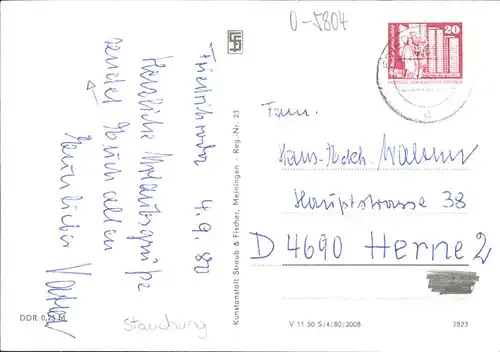 0-5804
20
Friedrichroda 4.9.80
Herzliche Urlaubsgrüße
sendet Euch allen
Euer lieber Vater
Stauchung
DDR 0,25 M
Kunstanstalt Straub & Fischer, Meiningen - Reg.-Nr. 23
Fam.
Hans-
Hauptstrasse 38
D 4690 Herne 2
V 11 50 S/4/80/3008
7823